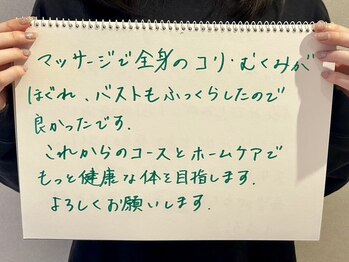 マッサージで全身のコリ・むくみが
ほぐれ、バストもふっくらしたので
良かったです.
これからのコースとホームケアで
もっと健康な体を目指します.
よろしくお願いします.